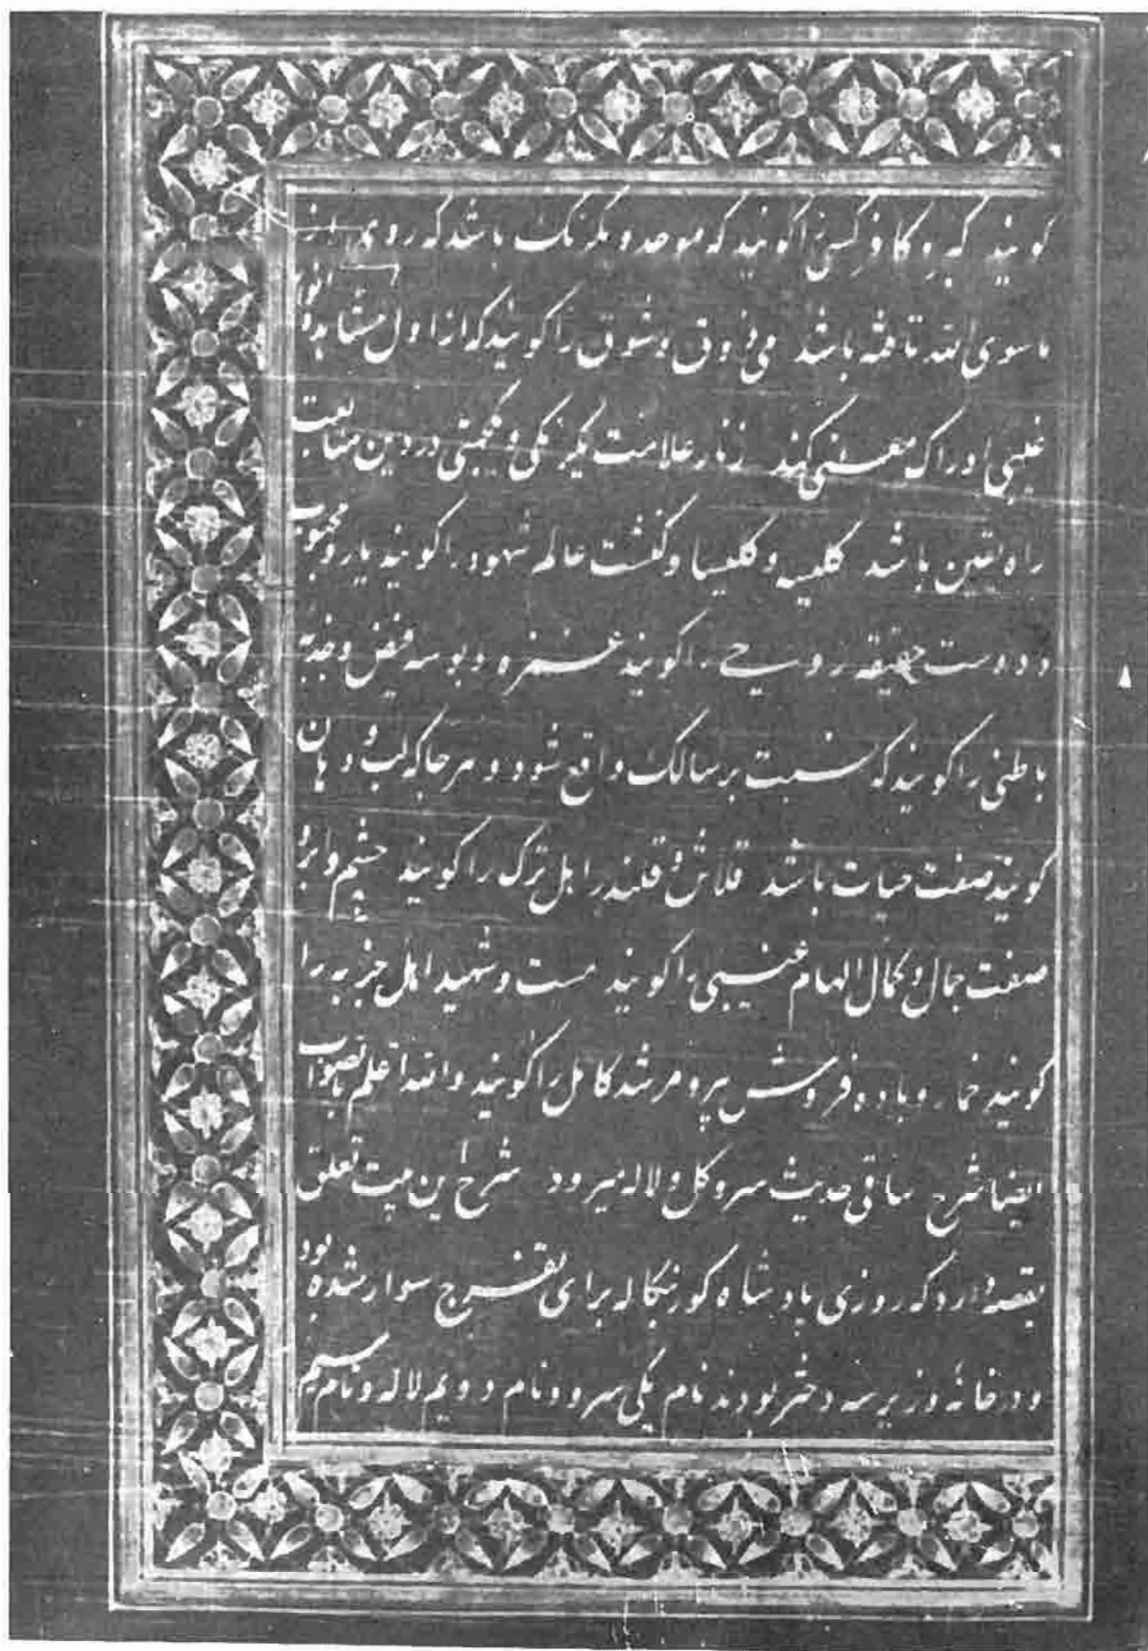 گویند کبر و کافر کسی را گویند که موحد و یکرنگ باشد که روی از
ماسوی الله تافته باشد می ذوق و شوق را گویند که از اول مشاهده انوار
غیبی ادراک معنی کند زنار علامت یکرنگی و یکجهتی در دین متابعت
راه یقین باشد کلیسه و کلیسا و کنشت عالم شهود را گویند یار و محبوب
و دوست حقیقه روحی را گویند غمزه و بوسه فیض و جذبه
باطنی را گویند که نسبت بر سالک واقع شود و هر جا که لب و دهان
گویند صفت حیات باشد قلاش و قلندر اهل ترک را گویند چشم و ابرو
صفت جمال و کمال الهام غیبی را گویند مست و شهید اهل جذبه را
گویند خمار و باده فروش پیر و مرشد کامل را گویند والله اعلم بالصواب
ایضا شرح ساقی حدیث سرو گل و لاله میرود شرح این بیت تعلق
بقصه دارد که روزی پادشاه گور بنگاله برای تفرج سوار شده بود
و در خانه وزیر سه دختر بودند نام یکی سرو و نام دویم لاله و نام سیم